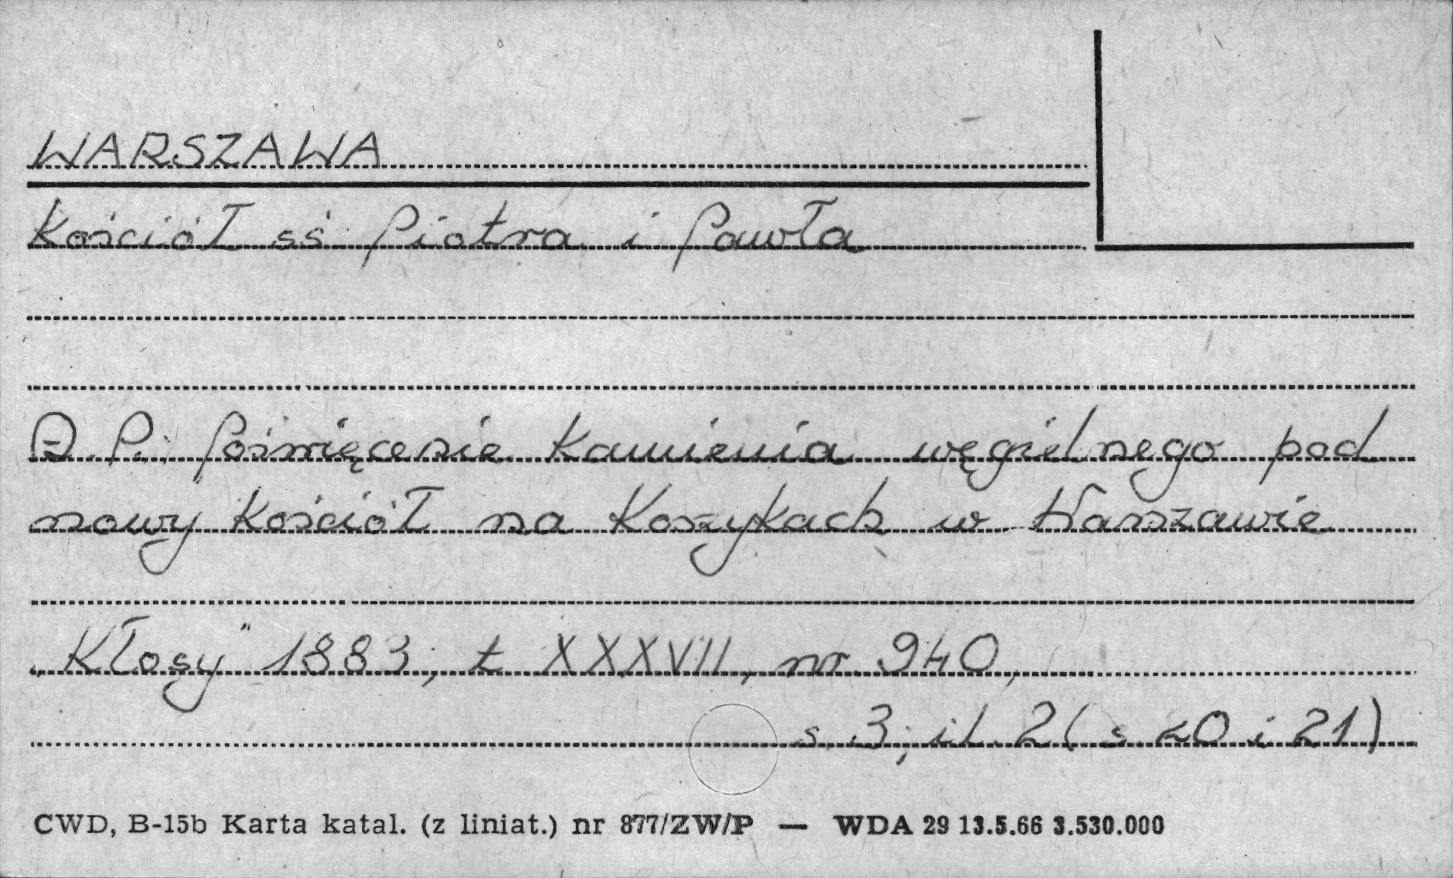 WARSZAWA
Kościół śś Piotra i Pawła
A. P.: Poświęcenie kamienia węgielnego pod
nowy kościół na Koszykach w Warszawie
„Kłosy" 1883, t XXXVII, nr 940,
s. 3; il. 2 (s. 20 i 21)
CWD, B-15b Karta katal. (z liniat.) nr 877/ZW/P — WDA 29 13.5.66 3.530.000